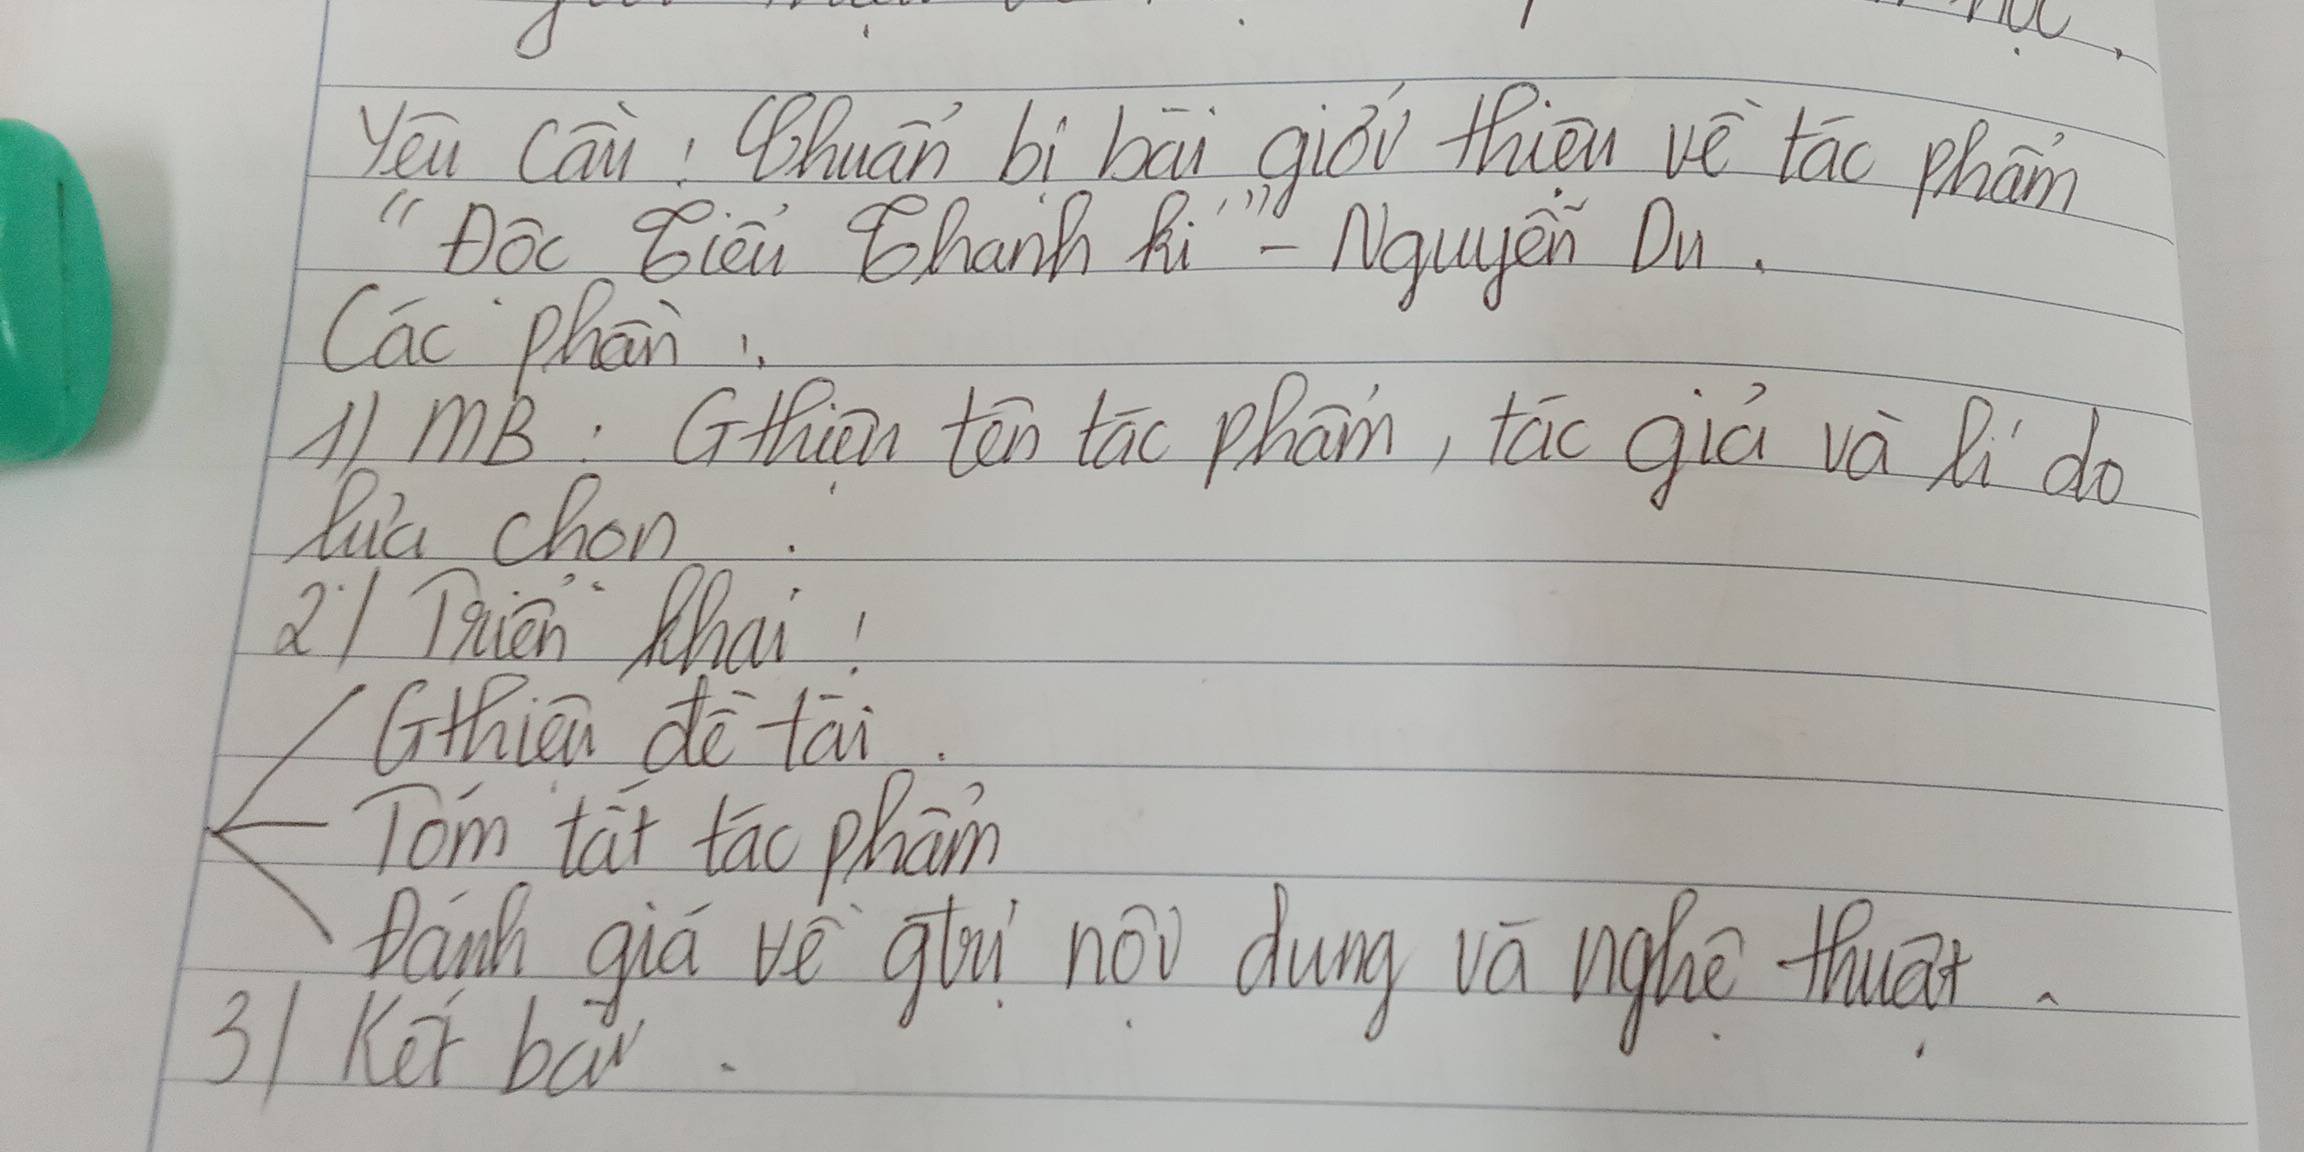 Yêu cầu : Chuẩn bị bài giới thiệu về tác phẩm
"Độc Tiểu Thanh kí" - Nguyễn Du.
Các phần :
1) MB : Gthiệu tên tác phẩm, tác giả và lí do
lựa chọn.
2) Triển khai :
Gthiệu đề tài.
Tóm tắt tác phẩm
Đánh giá về gtrị nội dung và nghệ thuật.
3) Kết bài.